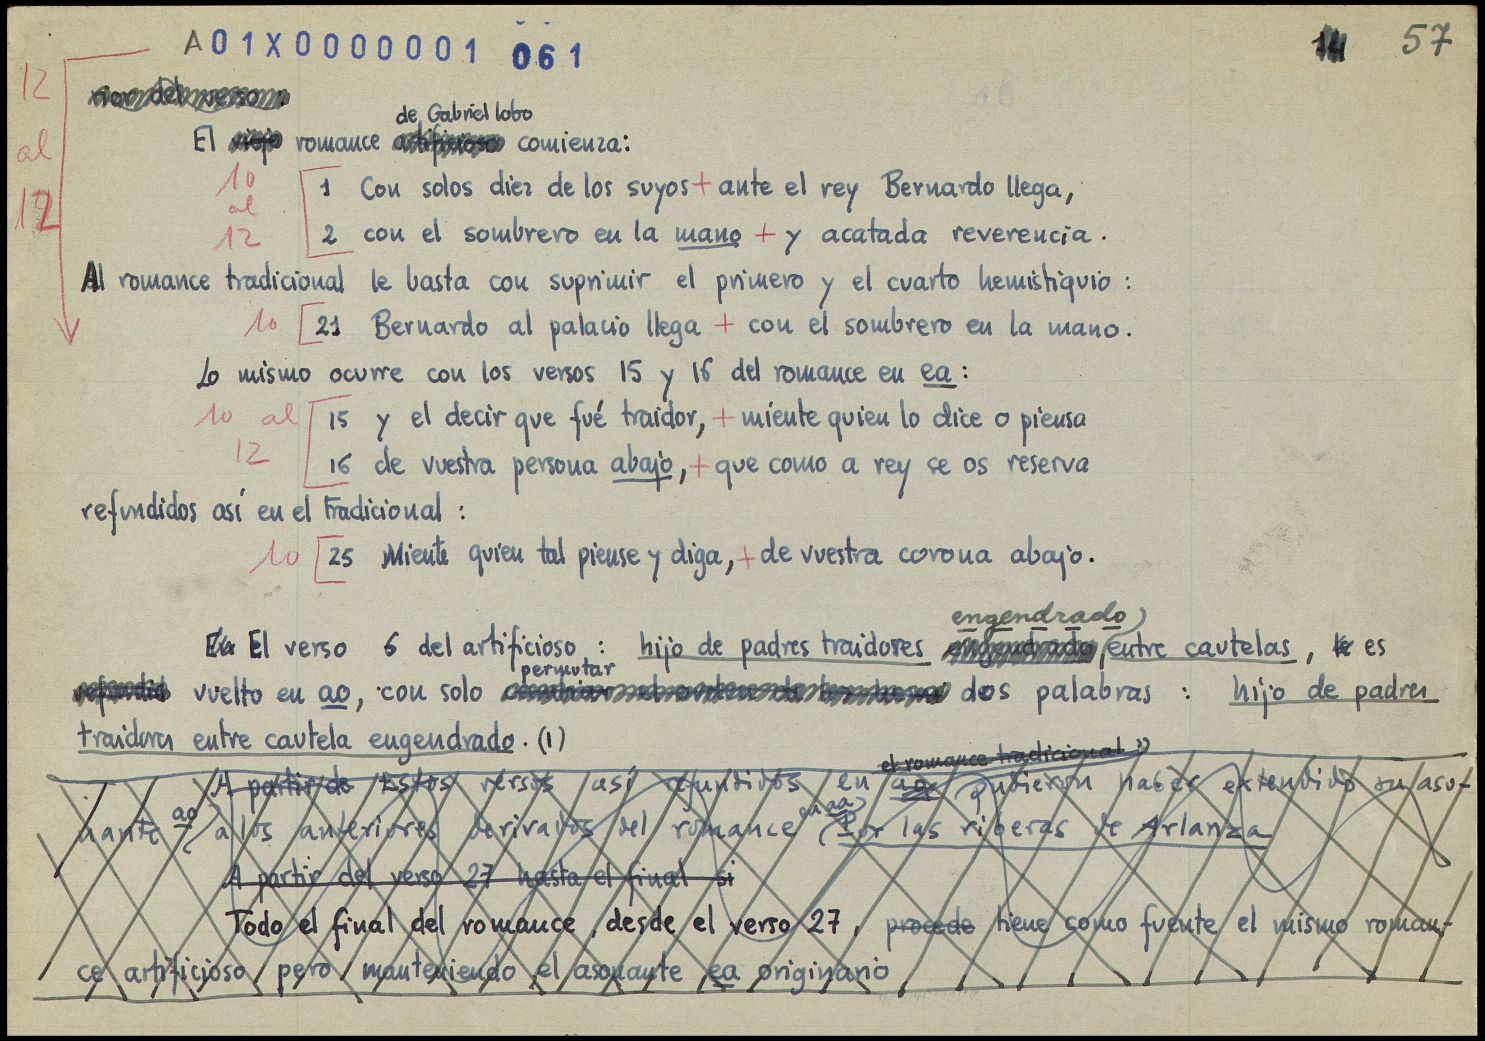 A01X0000001 061
14 57
12 al 12
rior del verso :
de Gabriel lobo
El viejo romance artificioso comienza:
10 al 12
1 Con solos diez de los suyos + ante el rey Bernardo llega,
2 con el sombrero en la mano + y acatada reverencia.
Al romance tradicional le basta con suprimir el primero y el cuarto hemistiquio :
10 [21 Bernardo al palacio llega + con el sombrero en la mano.
Lo mismo ocurre con los versos 15 y 16 del romance en ea :
10 al 12
15 y el decir que fué traidor, + miente quien lo dice o piensa
16 de vuestra persona abajo, + que como a rey se os reserva
refundidos así en el tradicional :
10 [25 Miente quien tal piense y diga, + de vuestra corona abajo.
engendrado
El verso 6 del artificioso : hijo de padres traidores engendrado, entre cautelas, es
permutar
refundid vuelto en ao, con solo cambiar el orden de las dos palabras : hijo de padres
traidores entre cautela engendrado. (1)
el romance tradicional
A partir de Estos versos así refundidos en ao pudieron haber extendido su aso-
nante ao a los anteriores derivados del romance en aa Por las riberas de Arlanza
A partir del verso 27 hasta el final si
Todo el final del romance, desde el verso 27, procede tiene como fuente el mismo roman-
ce artificioso, pero manteniendo el asonante ea originario